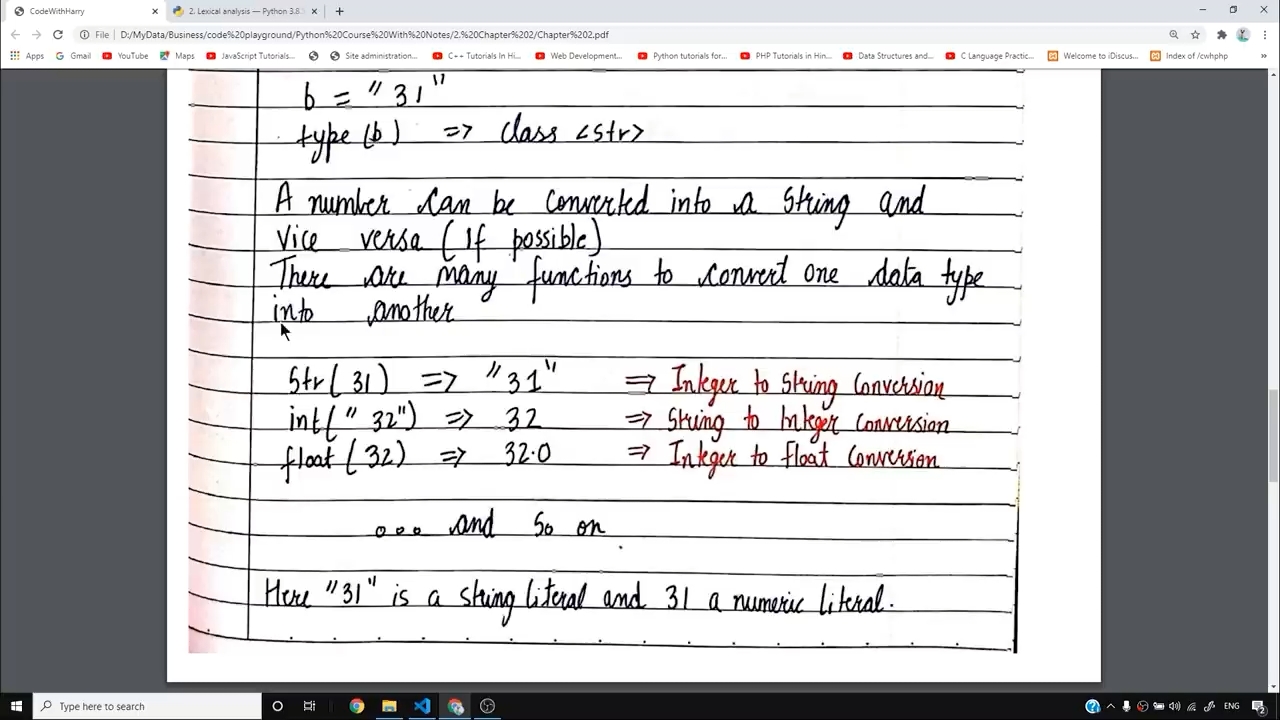 CodeWithHarry
2. Lexical analysis — Python 3.8
File
D:/MyData/Business/code%20playground/Python%20Course%20With%20Notes/2.%20Chapter%202/Chapter%202.pdf
Apps Gmail YouTube Maps JavaScript Tutorials... Site administration... C++ Tutorials In Hin... Web Development... Python tutorials for... PHP Tutorials in Hin... Data Structures and... C Language Practic... Welcome to iDiscus... Index of /cwhphp »
b = "31"
type (b) => class <str>
A number can be converted into a string and
vice versa (If possible)
There are many functions to convert one data type
into another
Str( 31) => "31" => Integer to String Conversion
int( "32") => 32 => String to Integer Conversion
float ( 32) => 32.0 => Integer to float Conversion
ooo and so on
Here "31" is a string literal and 31 a numeric literal.
Type here to search
ENG
2